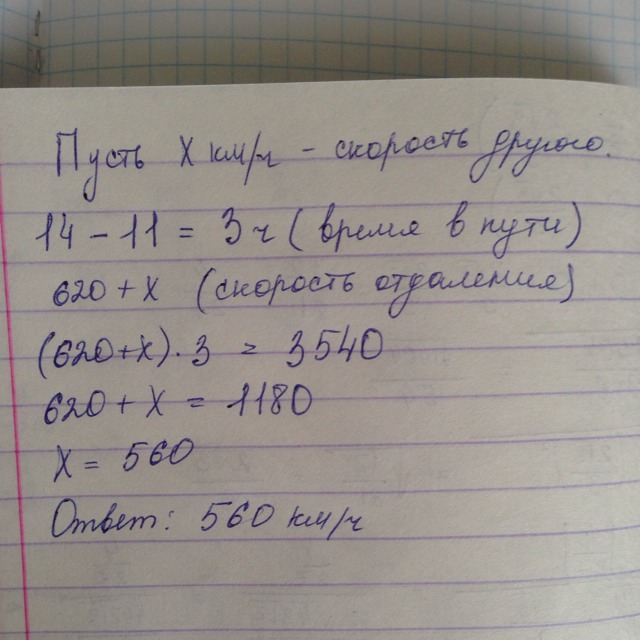 Пусть X км/ч - скорость другого.
14 - 11 = 3 ч (время в пути)
620 + X (скорость отдаления)
(620+X) · 3 = 3540
620 + X = 1180
X = 560
Ответ: 560 км/ч